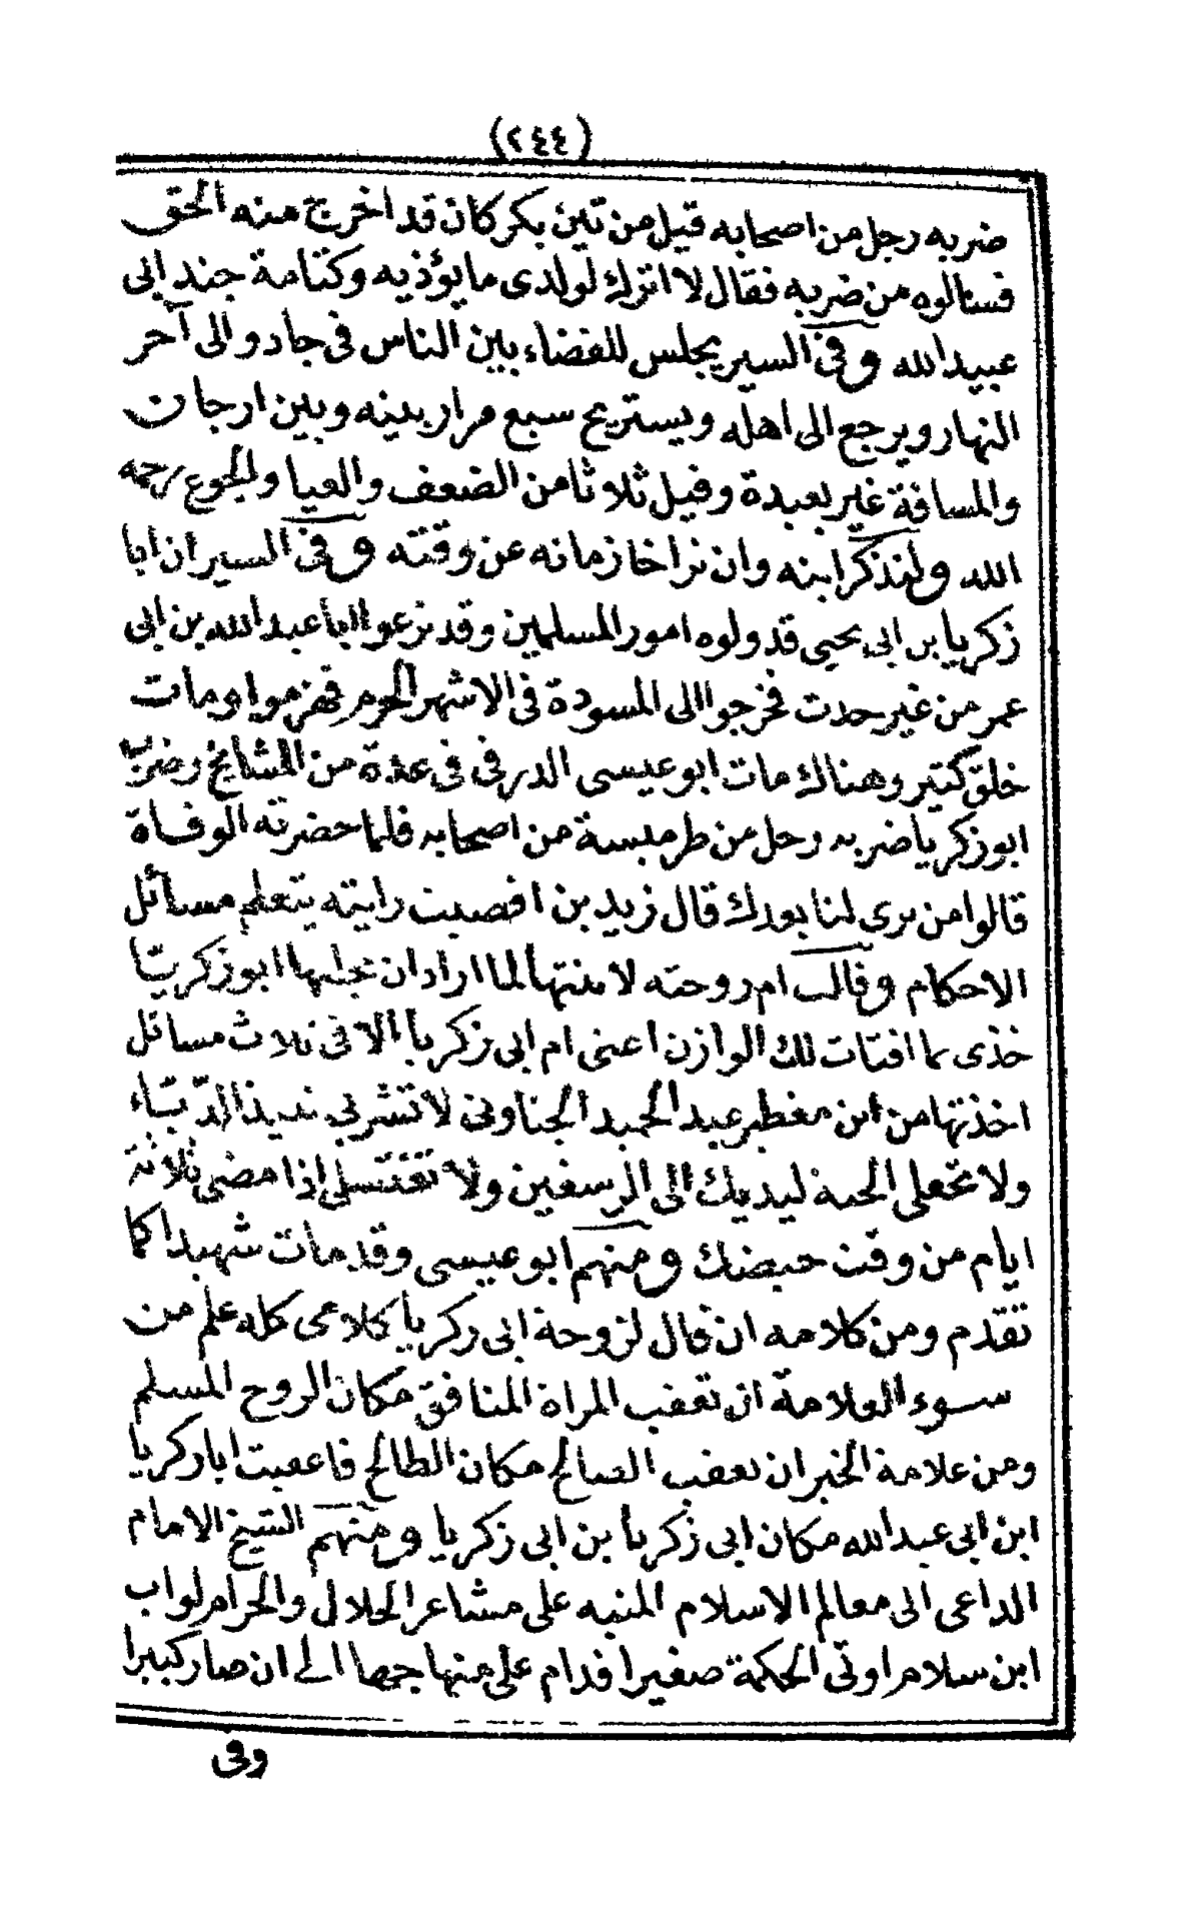 (٢٤٤)
ضربه رجل من اصحابه قيل من تين بكر كان قد اخرج منه الحق
فسالوه من ضربه فقال لا اترك لولدى ما يؤذيه وكتامة جند ابى
عبيد الله وفى السير يجلس للقضاء بين الناس فى جادو الى آخر
النهار ويرجع الى اهله ويستريح سبع مرار بينه وبين ارجان
والمسافة غير بعيدة وقيل ثلاثا من الضعف والعيا والجوع رحمه
الله ولنذكر ابنه وان تراخا زمانه عن وقته وفى السير ان ابا
زكريا بن ابى يحيى قد ولوه امور المسلمين وقد نزعوا ابا عبد الله بن ابى
عمر من غير حدث فخرجوا الى المسودة فى الاشهر الحرم فهزموا ومات
خلق كثير وهناك مات ابو عيسى الدرفى فى عدة من المشايخ وضرب
ابو زكريا ضربه رجل من طرميسة من اصحابه فلما حضرته الوفاة
قالوا من ترى لنا بعدك قال زيد بن افصيت رايته يتعلم مسائل
الاحكام وقالت ام زوجته لابنتها لما اراد ان يجلبها ابو زكريا
خذى بما افتات لك الوازن اعنى ام ابى زكريا الا فى ثلاث مسائل
اخذتها من ابن مغطير عبد الحميد الجناونى لا تشربى نبيذ الدبّاء
ولا تجعلى الحنة ليديك الى الرسغين ولا تغتسلى اذا مضى ثلاثة
ايام من وقت حيضك ومنهم ابو عيسى وقد مات شهيدا كما
تقدم ومن كلامه ان قال لزوجة ابى زكريا كلامى كله علم من
سوء العلامة ان تعقب المراة المنافق مكان الزوج المسلم
ومن علامة الخير ان تعقب الصالح مكان الطالح فاعقبت ابا زكريا
ابن ابى عبد الله مكان ابى زكريا بن ابى زكريا ومنهم الشيخ الامام
الداعى الى معالم الاسلام المنبه على مشاعر الحلال والحرام لواب
ابن سلام اوتى الحكمة صغيرا فدام على منهاجها الى ان صار كبيرا
وفى